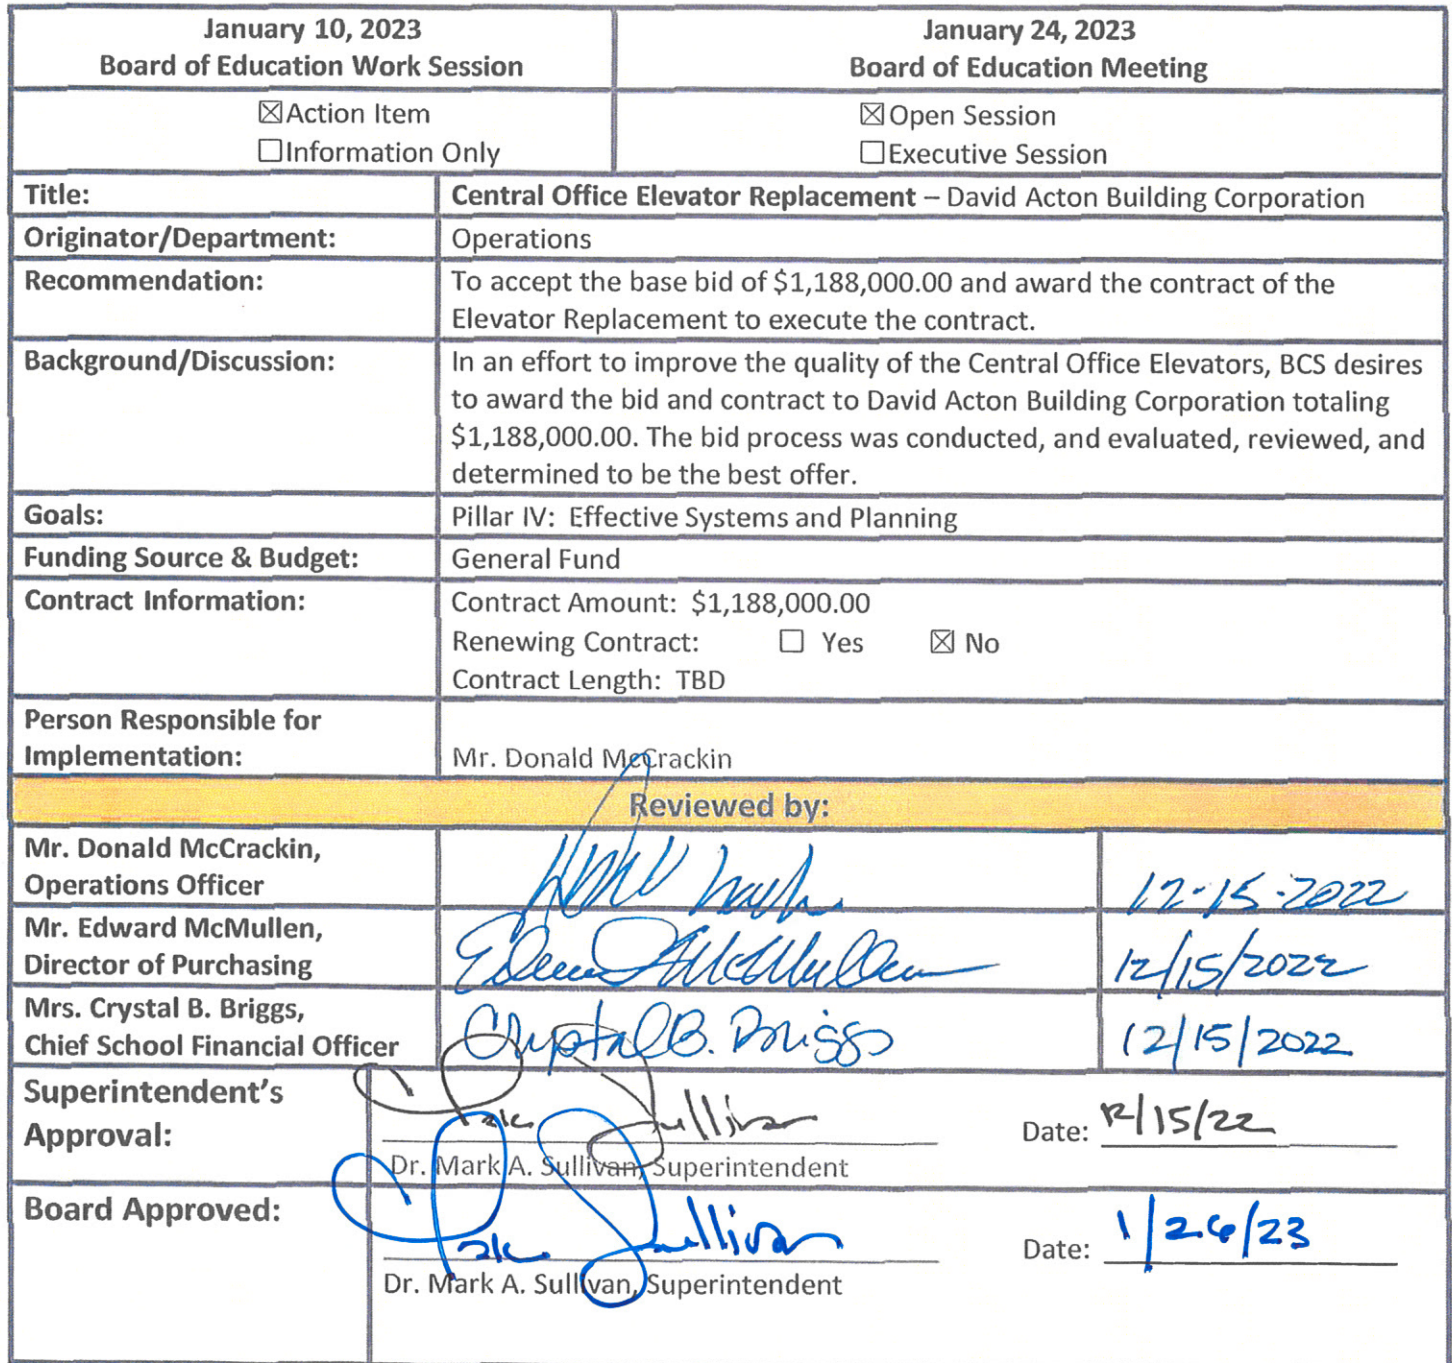 January 10, 2023
Board of Education Work Session
January 24, 2023
Board of Education Meeting
☒Action Item
☐Information Only
☒Open Session
☐Executive Session
Title:
Central Office Elevator Replacement – David Acton Building Corporation
Originator/Department:
Operations
Recommendation:
To accept the base bid of $1,188,000.00 and award the contract of the
Elevator Replacement to execute the contract.
Background/Discussion:
In an effort to improve the quality of the Central Office Elevators, BCS desires
to award the bid and contract to David Acton Building Corporation totaling
$1,188,000.00. The bid process was conducted, and evaluated, reviewed, and
determined to be the best offer.
Goals:
Pillar IV: Effective Systems and Planning
Funding Source & Budget:
General Fund
Contract Information:
Contract Amount: $1,188,000.00
Renewing Contract: ☐ Yes ☒ No
Contract Length: TBD
Person Responsible for
Implementation:
Mr. Donald McCrackin
Reviewed by:
Mr. Donald McCrackin,
Operations Officer
12-15-2022
Mr. Edward McMullen,
Director of Purchasing
McMullen
12/15/2022
Mrs. Crystal B. Briggs,
Chief School Financial Officer
Crystal B. Briggs
12/15/2022
Superintendent's
Approval:
Mark Sullivan
Date: 12/15/22
Dr. Mark A. Sullivan, Superintendent
Board Approved:
Mark Sullivan
Date: 1/26/23
Dr. Mark A. Sullivan, Superintendent